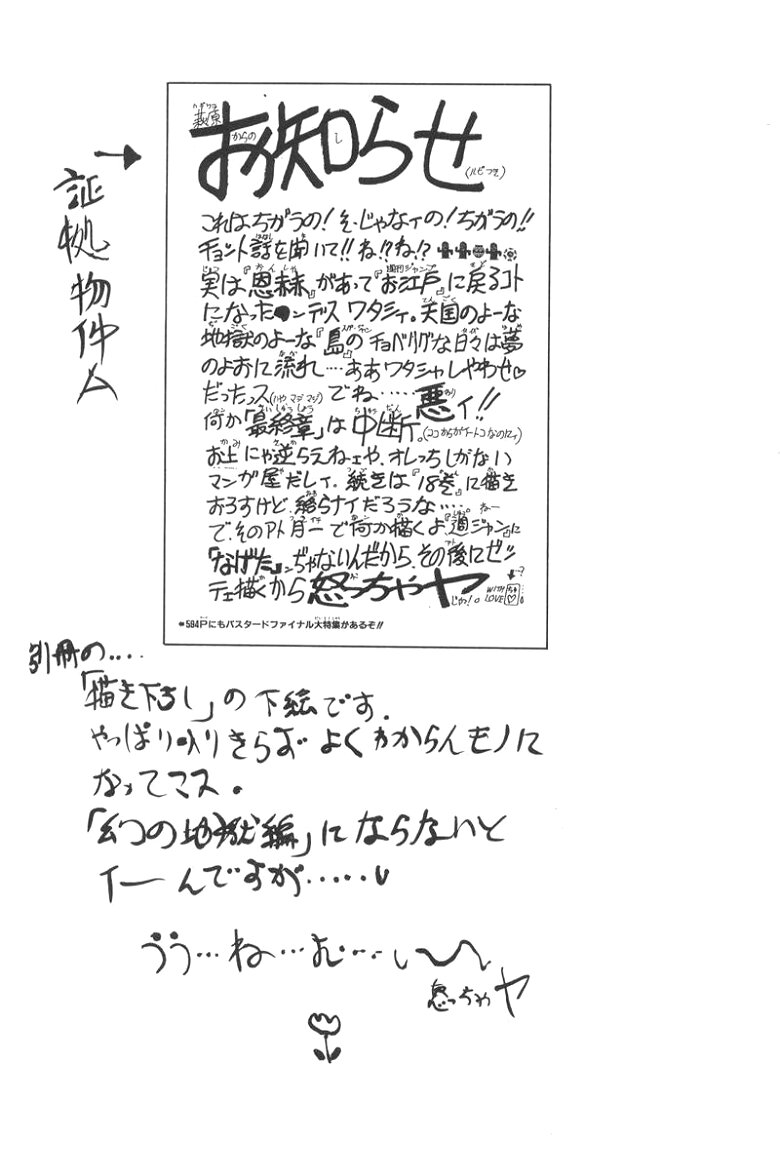 証拠物件A
萩原からのお知らせ(ルビつき)
これはちがうの!そーじゃなィの!ちがうの!!
チョット話を聞いて!!ね!?ね!?
実は『恩赦』があって『お江戸』に戻るコト
になった ンデス ワタシィ。天国のよーな
地獄のよーな『島』のチョベリグな日々は夢
のよおに流れ……ああワタシャしやわせ♡
だったっス(いや マジ マジ) でね……悪ィ!!
何か「最終章」は中断。(ココからがイートコなのにィ)
お上にゃ逆らえねェや、オレっちしがない
マンガ屋だしィ。続きは『18巻』に描き
おろすけど、終らナイだろうな……
で、そのアト月一で何か描くよ『週ジャン』に
『なげた』んぢゃないんだから、その後にゼッ
テェ描くから怒っちゃヤ じゃ!。 WITH LOVE
●594Pにもバスタードファイナル大特集があるぞ!!
別冊の....
「描き下ろし」の下絵です.
やっぱり入りきらず よくわからんモノに
なってマス。
「幻の地獄編」にならないと
イーんですが.....
うう…ね…む…ぃ〜
怒っちゃヤ